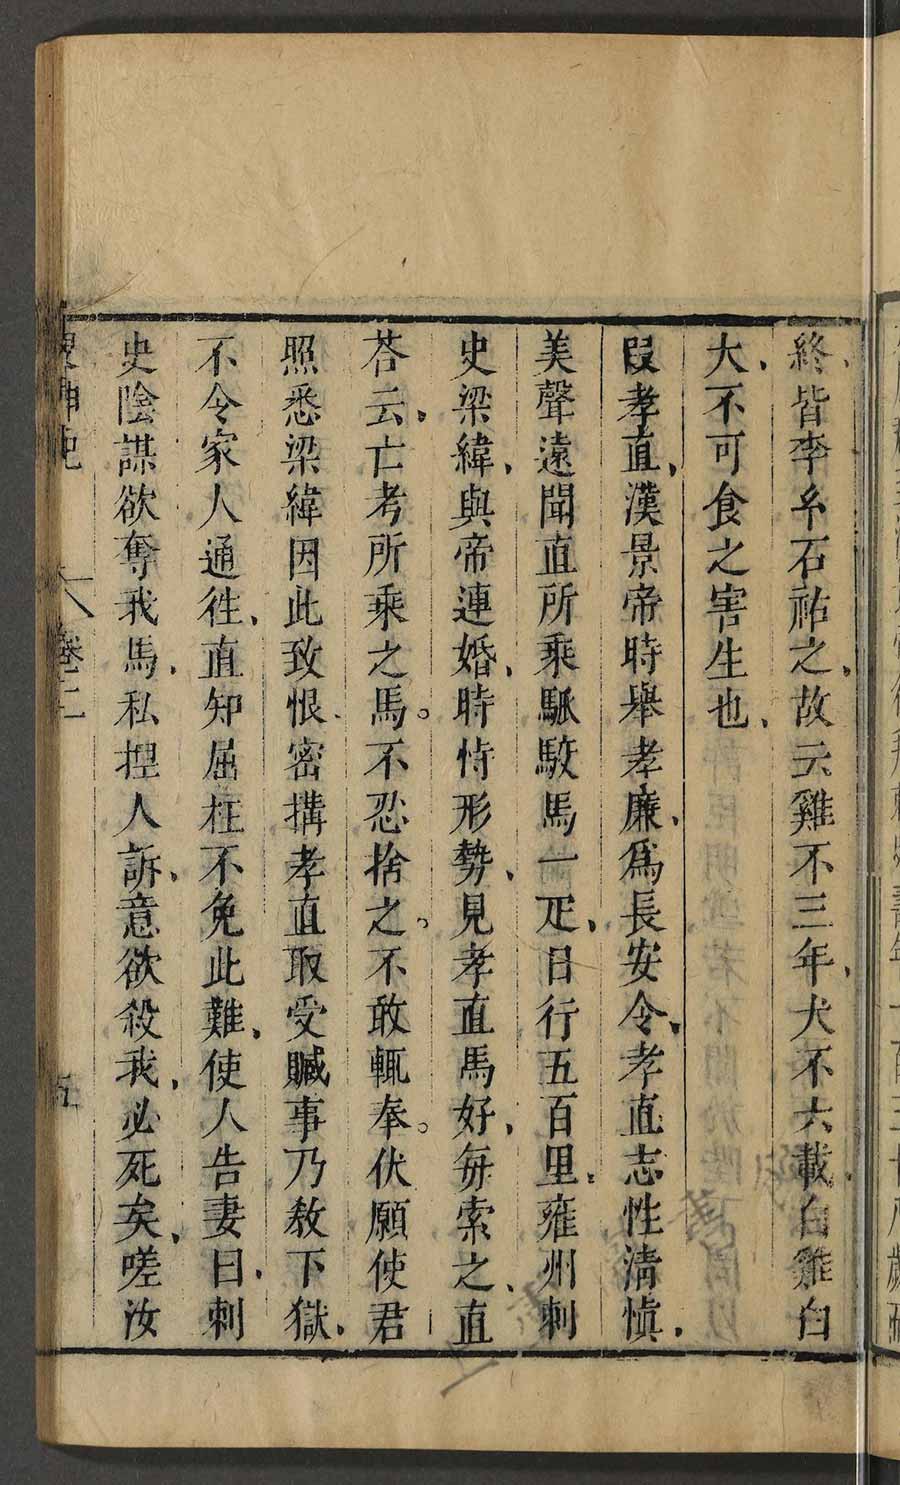 終皆李糸石祐之故云雞不三年犬不六載白雞白
犬不可食之害生也
段孝直漢景帝時舉孝廉爲長安令孝直志性清慎
美聲遠聞直所乘駆駮馬一疋日行五百里雍州刺
史梁緯與帝連婚時恃形勢見孝直馬好每索之直
荅云亡考所乘之馬。不忍捨之。不敢輒奉。伏願使君
照悉梁緯因此致恨密搆孝直取受贓事乃敕下獄
不令家人通徃直知屈枉不免此難使人告妻曰刺
史陰謀欲奪我馬私捏人訴意欲殺我必死矣嗟汝
搜神記 八卷二 五